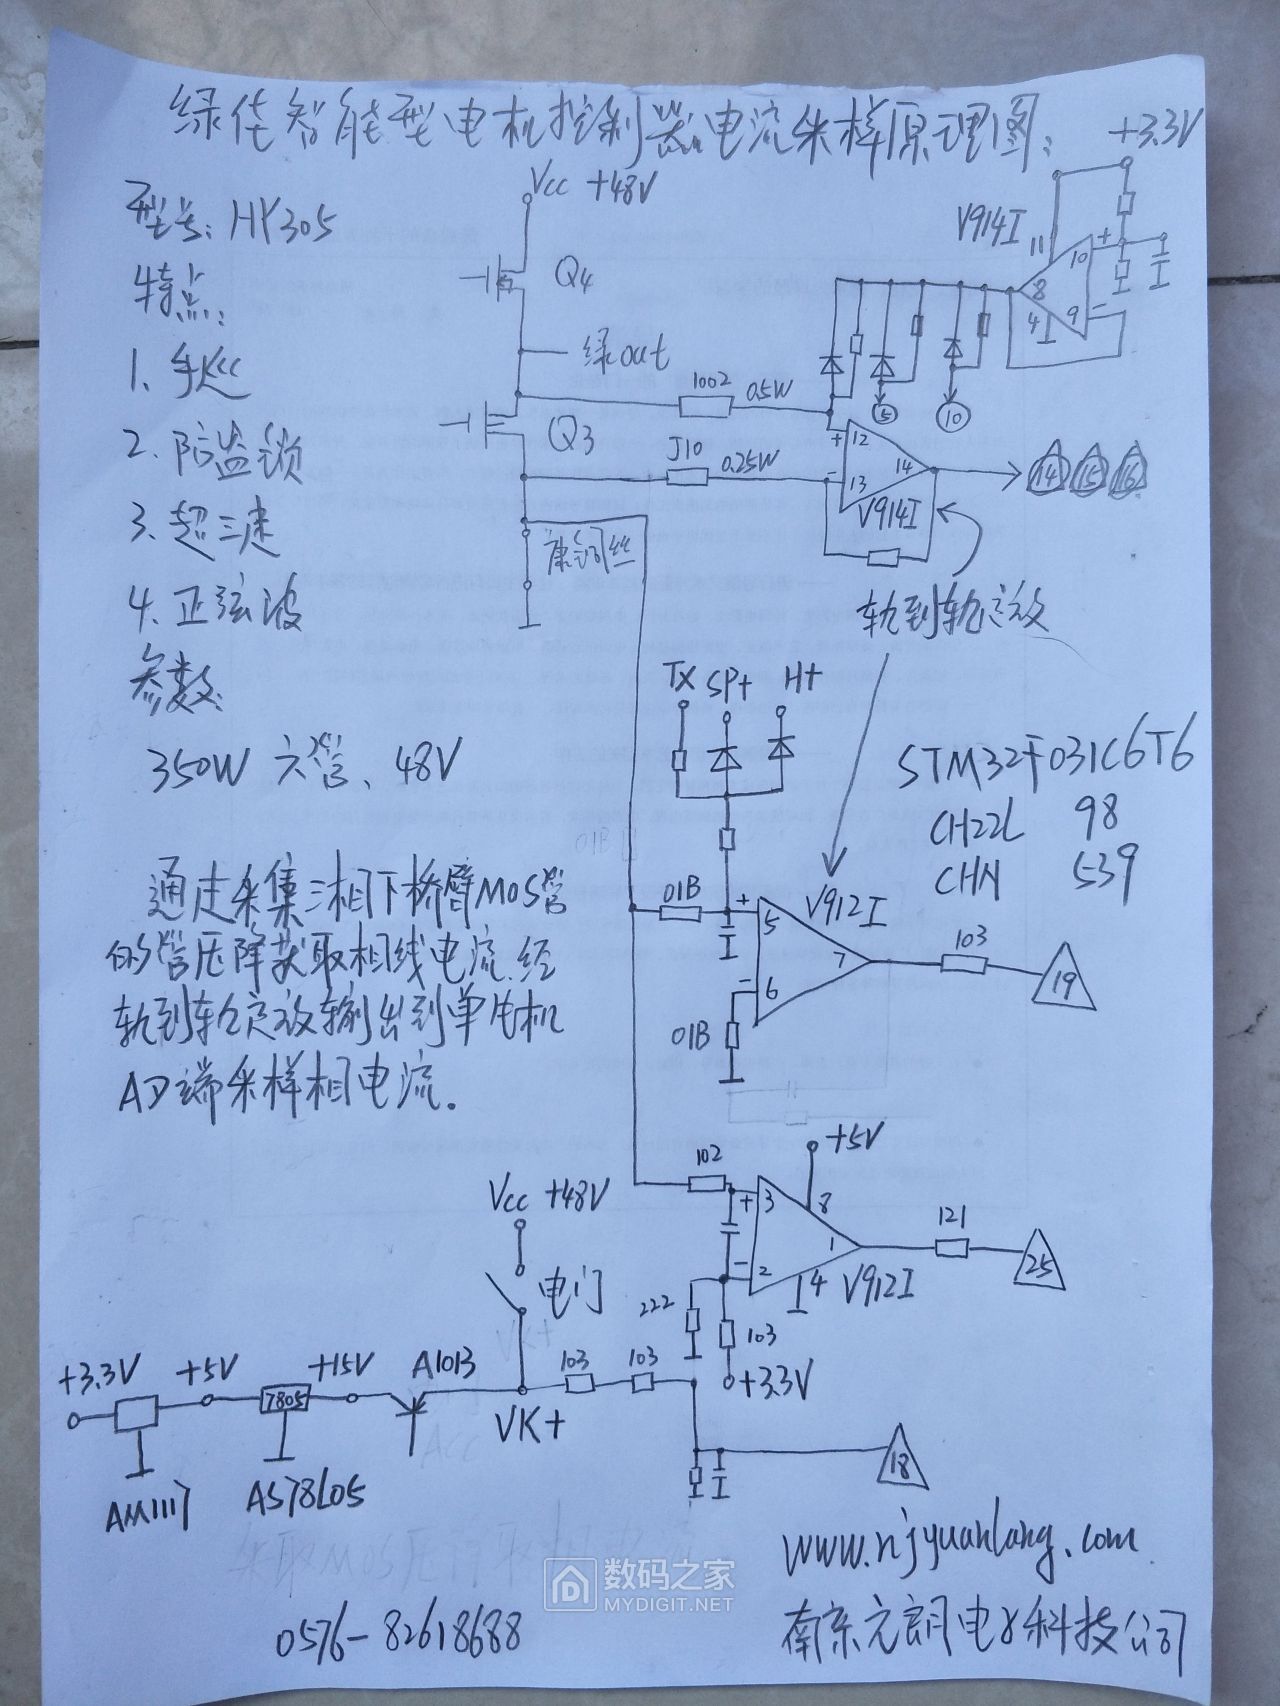 绿佳智能型电机控制器电流采样原理图:
型号: HY305
特点:
1.
2. 防盗锁
3. 超三速
4. 正弦波
参数:
350W 六管、48V
通过采集三相下桥臂MOS管
的管压降获取相线电流.经
轨到轨运放输出到单片机
AD端采样相电流.
Vcc +48V
Q4
绿out
Q3
1002
0.5W
J10
0.25W
康铜丝
+3.3V
V914I
11
+
10
8
4
9
-
5
10
+
12
-
13
14
V914I
14 15 16
轨到轨运放
TX SP+ H+
STM32F031C6T6
CH22L 98
CHN 539
01B
+
5
V912I
7
-
6
01B
103
19
102
+5V
+
3
8
1
-
2
4 V912I
121
25
222
103
+3.3V
Vcc +48V
电门
+3.3V
+5V
+15V
A1013
103
103
7805
VK+
AM1117
AS78L05
18
www.njyuanlang.com
南京元朗电子科技公司
0576-82618688
数码之家
MYDIGIT.NET